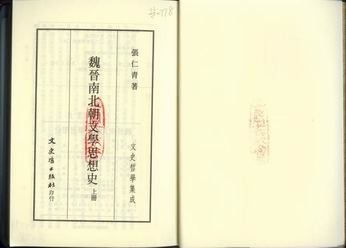 張仁青著
文史哲學集成
魏晉南北朝文學思想史 上冊
文史哲出版社印行